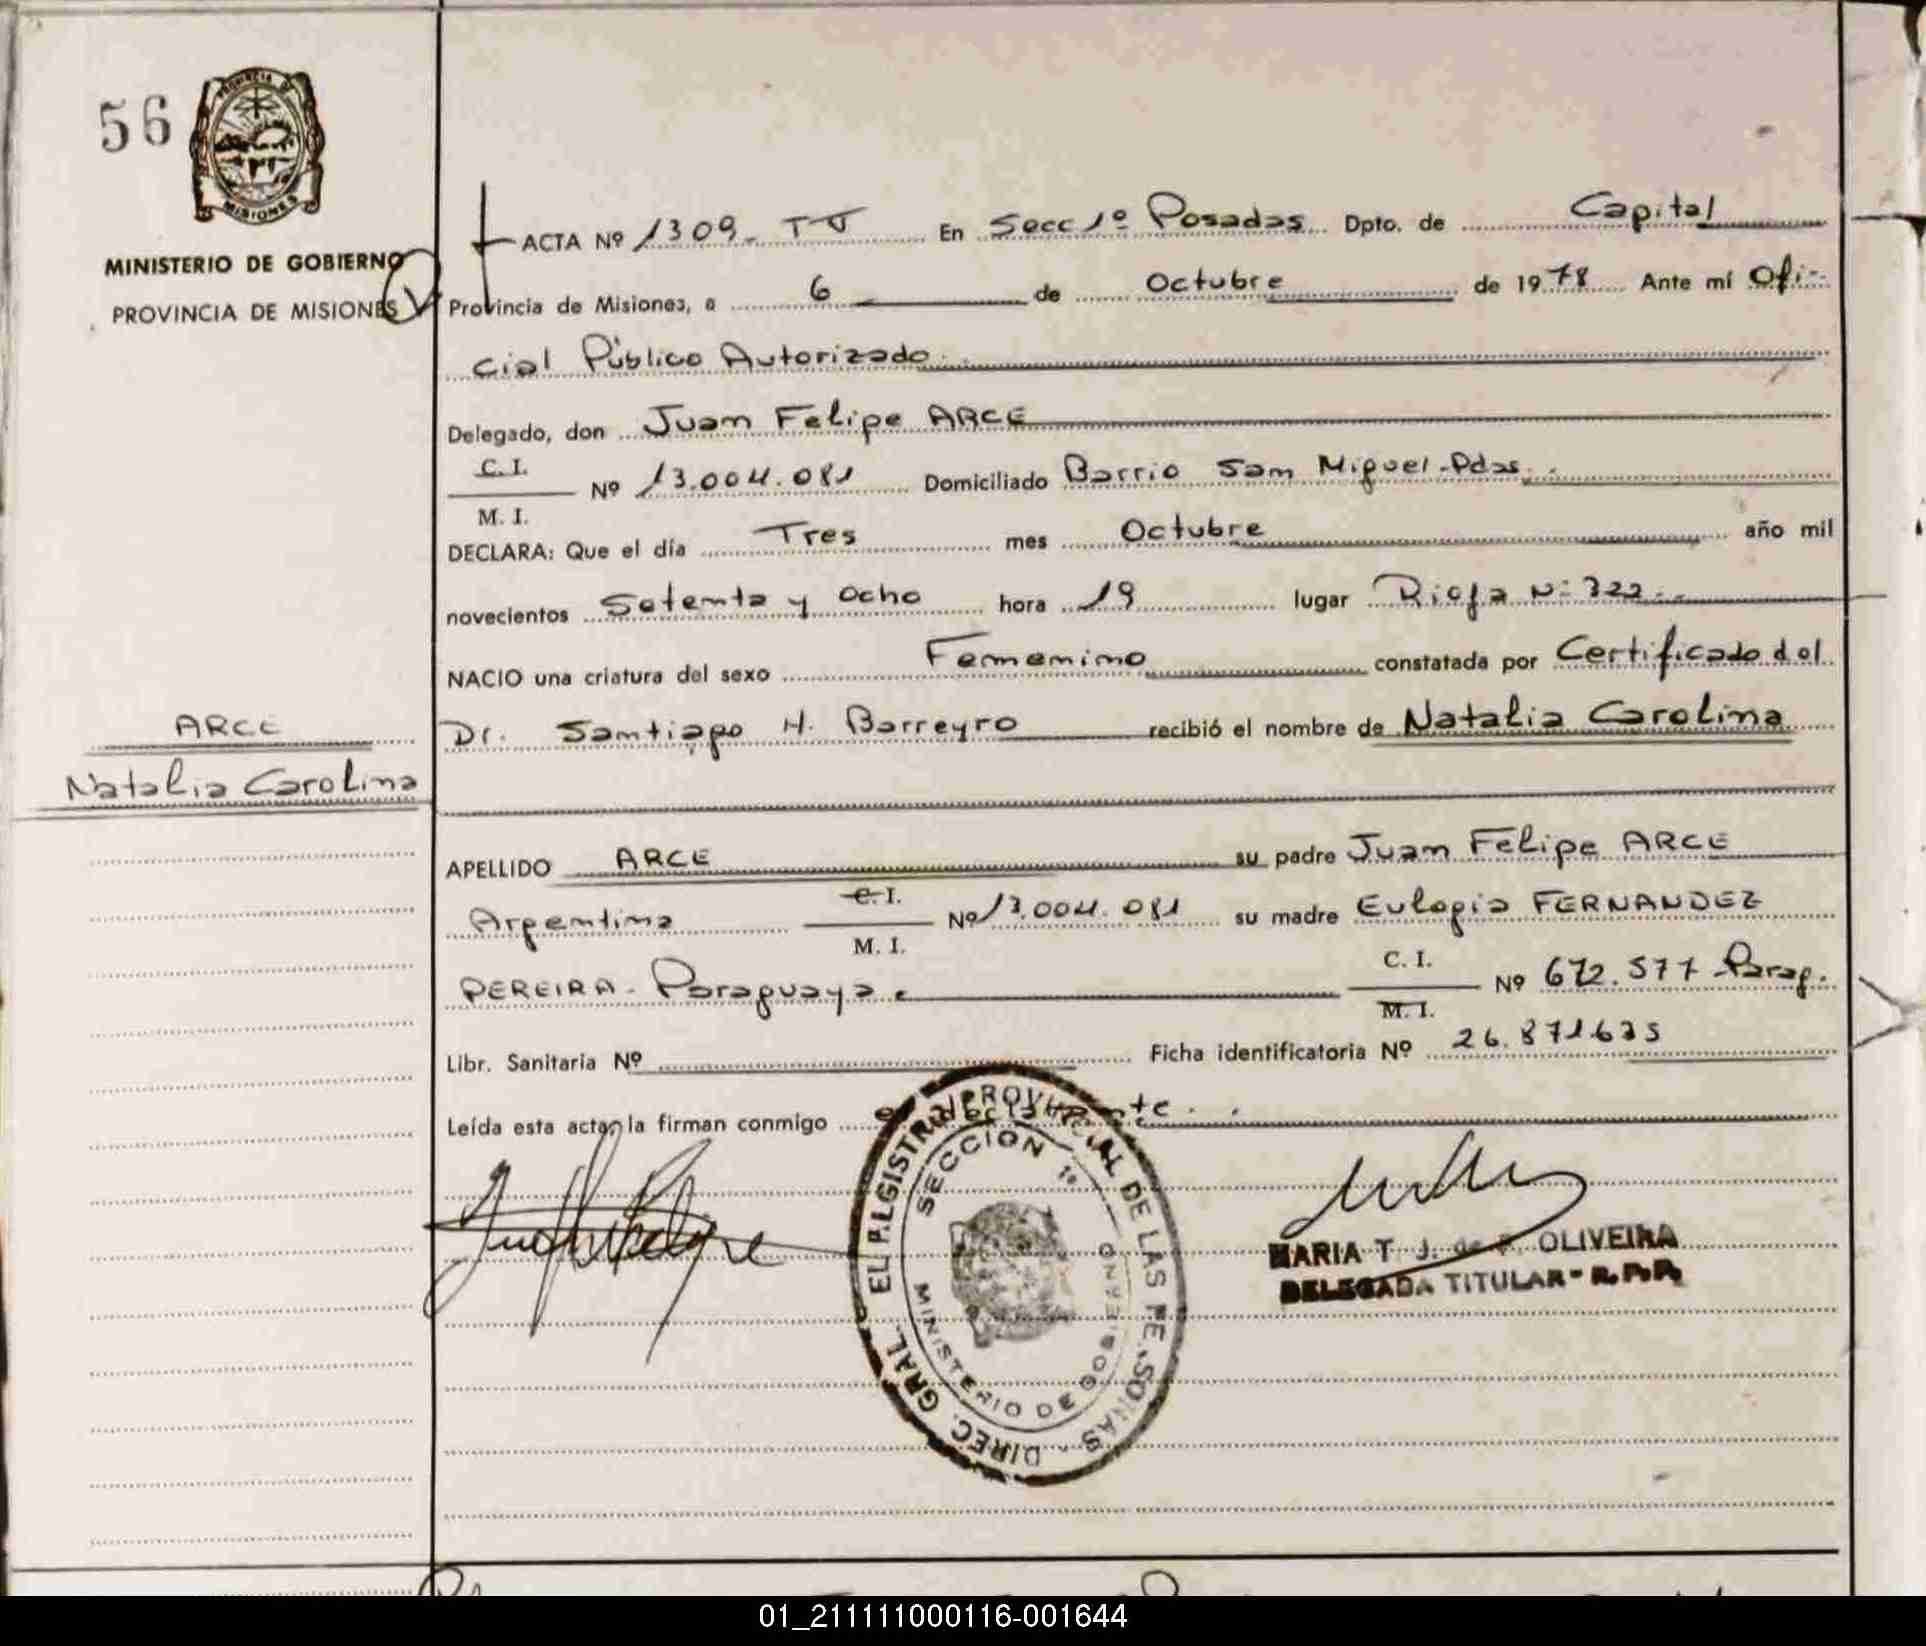 56
PROVINCIA DE
MISIONES
MINISTERIO DE GOBIERNO
PROVINCIA DE MISIONES
ACTA Nº 1309. TJ En Secc 1º Posadas Dpto. de Capital
Provincia de Misiones, a 6 de Octubre de 1978 Ante mí Ofi-
cial Público Autorizado.
Delegado, don Juan Felipe ARCE
C. I.
Nº 13.004.081 Domiciliado Barrio San Miguel-Pdas.
M. I.
DECLARA: Que el día Tres mes Octubre año mil
novecientos Setenta y Ocho hora 19 lugar Rioja Nº 322.
NACIO una criatura del sexo Femenino constatada por Certificado del
Dr. Santiago H. Barreyro recibió el nombre de Natalia Carolina
ARCE
Natalia Carolina
APELLIDO ARCE su padre Juan Felipe ARCE
Argentina C. I. Nº 13.004.081 su madre Eulogia FERNANDEZ
M. I.
PEREIRA - Paraguaya C. I. Nº 672.577 Parag.
M. I.
Libr. Sanitaria Nº Ficha identificatoria Nº 26.871635
Leída esta acta, la firman conmigo el declarante.
DIREC. GRAL. DEL REGISTRO PROVINCIAL DE LAS PERSONAS
SECCION 1º
MINISTERIO DE GOBIERNO
MARIA T. J. de OLIVEIRA
DELEGADA TITULAR - R.P.P.
01_211111000116-001644